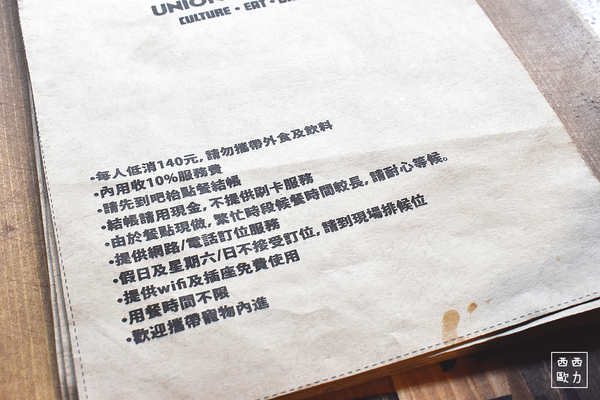 UNION
CULTURE • EAT •
•每人低消140元,請勿攜帶外食及飲料
•內用收10%服務費
•請先到吧枱點餐結帳
•結帳請用現金,不提供刷卡服務
•由於餐點現做,繁忙時段候餐時間較長,請耐心等候。
•提供網路/電話訂位服務
•假日及星期六/日不接受訂位,請到現場排候位
•提供wifi及插座免費使用
•用餐時間不限
•歡迎攜帶寵物內進
西西
歐力